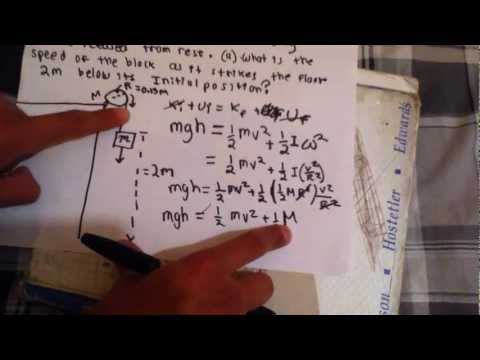 released from rest. (a) what is the
speed of the block as it strikes the floor
2m below its Initial position?
M R=0.15m
m
= 2m
+ Ui = Kf + Uf
mgh = 1/2 mv² + 1/2 Iω²
= 1/2 mv² + 1/2 I(v²/R²)
mgh = 1/2 mv² + 1/2 (1/2 MR²) v²/R²
mgh = 1/2 mv² + 1/2 M
son ■ Hostetler ■ Edwards